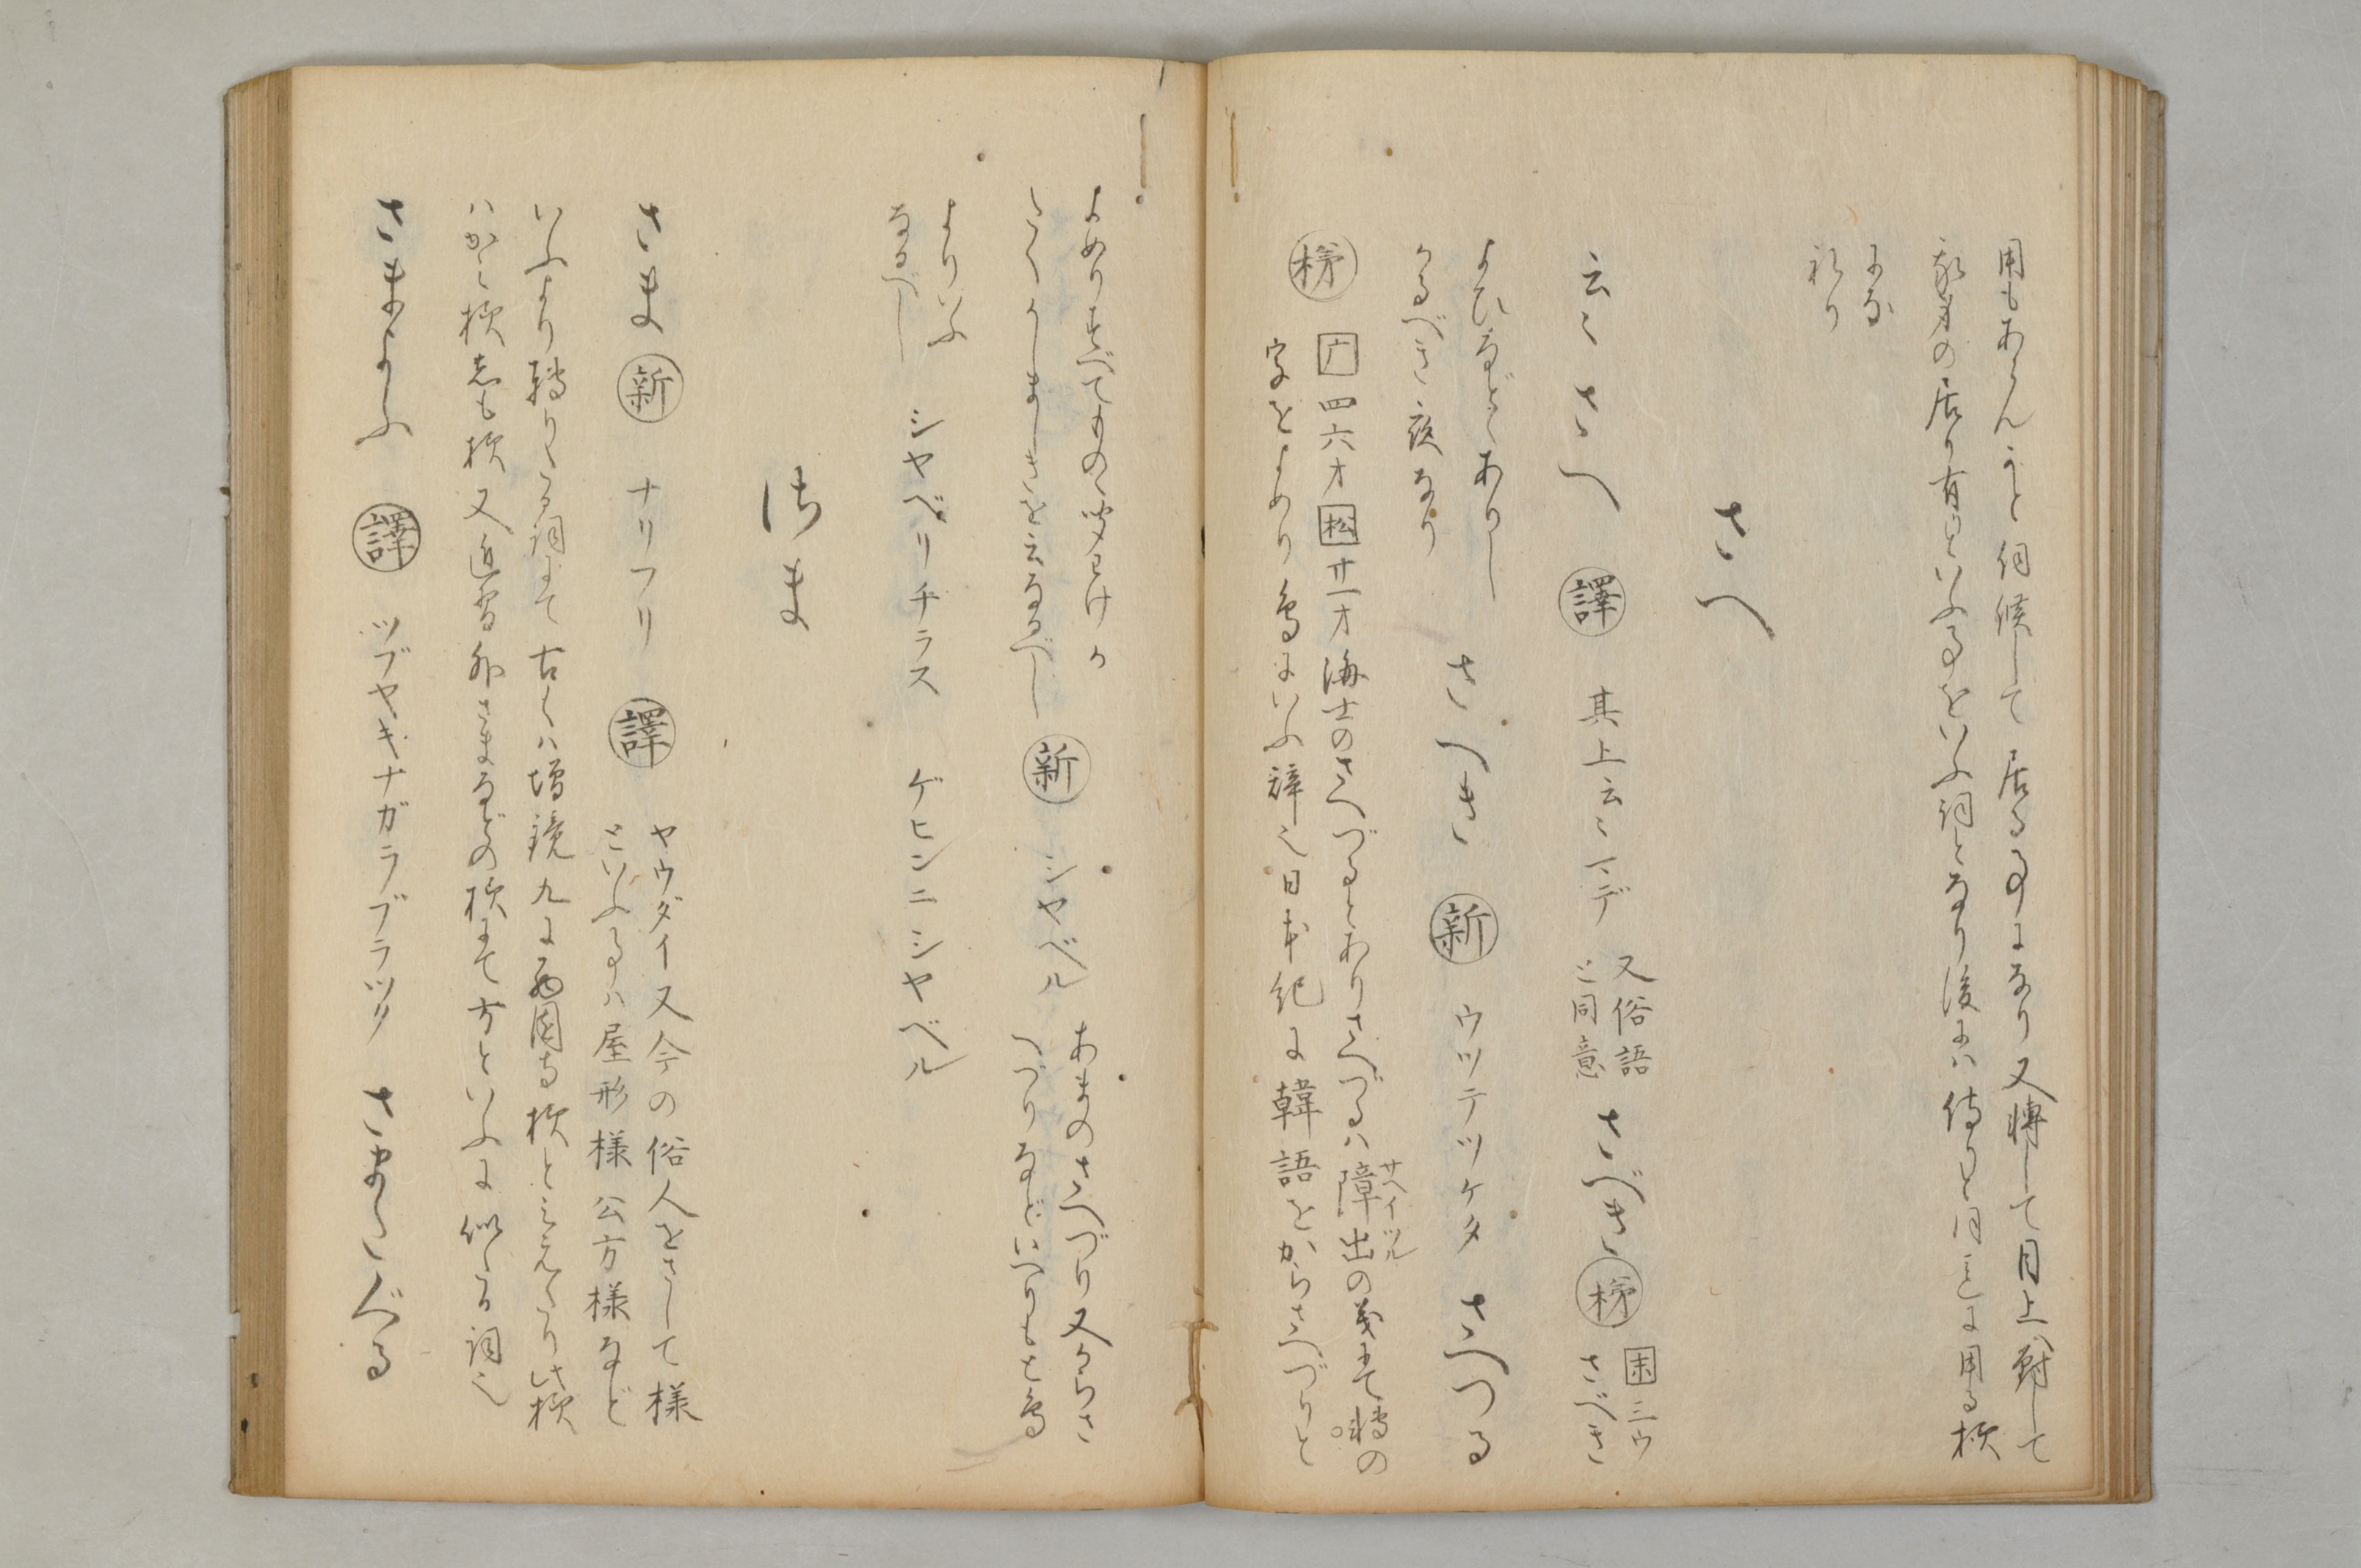 用もあらんかと伺候して居る事になり又轉して目上へ對して
我身の居り有をといふ事をいふ詞となり後には侍りと同しに用る様
になれり
さへ
云々さへ　譯　其上云々マデ　又俗語ト同意　さべき　梯　困三ウ　さべき
よひなどゝありし
かるべき疾なり　さへき　新　ウツテツケタ　さへつる
梯　广四六オ　松廿一オ　海士のさへづるとありさへづるハ障出サヘイヅルの義にて轉の
字をよめり鳥にいふ辞也日本紀に韓語をからさへづりと
よめりすべてものゝ聞わけか
たくかしましきを云なるべし　新　シヤベル　あまのさへづり又からさ
へづりなどいへりもと鳥
よりいふ
なるべし　シヤベリチラス　ゲヒンニシヤベル
さま
さま　新　ナリフリ　譯　ヤウダイ又今の俗人をさして様
といふ事ハ屋形様公方様など
いふより轉りたる詞にて古くハ増鏡九に西園寺様と見えたり此様
ハかく様志も様又近習外さまなどの様にて方といふに似たる詞也
さまよふ　譯　ツブヤキナガラブラツク　さまたぐる